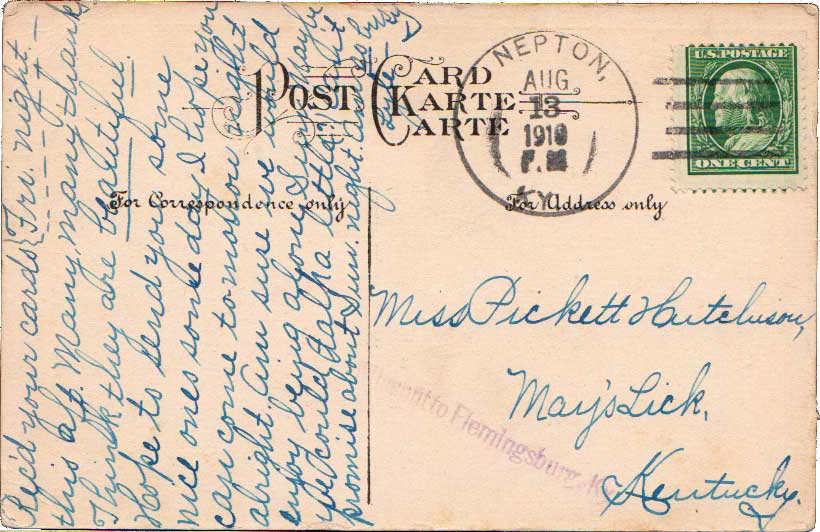 POST CARD
KARTE
CARTE
For Correspondence only
For Address only
U.S. POSTAGE
ONE CENT
NEPTON,
AUG
13
1910
KY.
Miss Pickett Hutchison,
May's Lick,
Kentucky.
to Flemingsburg, Ky
Fri. night.
Rec'd your cards
this aft. Many, many thanks
Think they are beautiful.
Hope to send you some
nice ones some day. I hope you
can come tomorrow night
alright. Am sure we would
enjoy being along. Sis maybe
we could talk a little
promise about Sun. night